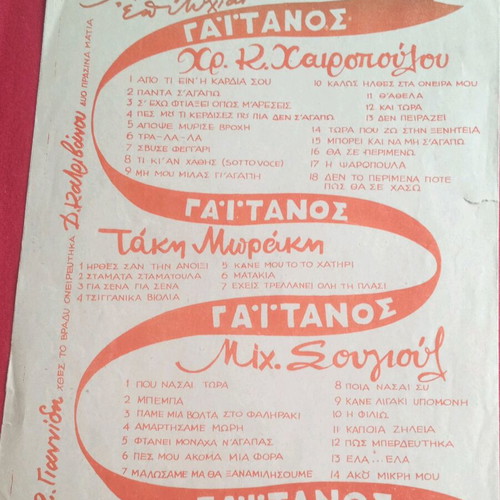 ἐπιτυχίαι
ΓΑΪΤΑΝΟΣ
Χρ. Κ. Χαιροπούλου
1 ΑΠΟ ΤΙ ΕΙΝ'Η ΚΑΡΔΙΑ ΣΟΥ
2 ΠΑΝΤΑ Σ'ΑΓΑΠΩ
3 Σ' ΕΧΩ ΦΤΙΑΞΕΙ ΟΠΩΣ Μ'ΑΡΕΣΕΙΣ
4 ΠΕΣ ΜΟΥ ΤΙ ΚΕΡΔΙΣΕΣ ΠΟΥ ΠΙΑ ΔΕΝ Σ'ΑΓΑΠΩ
5 ΑΠΟΨΕ ΜΥΡΙΣΕ ΒΡΟΧΗ
6 ΤΡΑ-ΛΑ-ΛΑ
7 ΣΒΥΣΕ ΦΕΓΓΑΡΙ
8 ΤΙ ΚΙ'ΑΝ ΧΑΘΗΣ (SOTTO VOCE)
9 ΜΗ ΜΟΥ ΜΙΛΑΣ ΓΙ'ΑΓΑΠΗ
10 ΚΑΛΩΣ ΗΛΘΕΣ ΣΤΑ ΟΝΕΙΡΑ ΜΟΥ
11 Θ'ΑΘΕΛΑ
12 ΚΑΙ ΤΩΡΑ
13 ΔΕΝ ΠΕΙΡΑΖΕΙ
14 ΤΩΡΑ ΠΟΥ ΖΩ ΣΤΗΝ ΞΕΝΗΤΕΙΑ
15 ΜΠΟΡΕΙ ΚΑΙ ΝΑ ΜΗ Σ'ΑΓΑΠΩ
16 ΘΑ ΣΕ ΠΕΡΙΜΕΝΩ
17 Η ΨΑΡΟΠΟΥΛΑ
18 ΔΕΝ ΤΟ ΠΕΡΙΜΕΝΑ ΠΟΤΕ
ΠΩΣ ΘΑ ΣΕ ΧΑΣΩ
ΓΑΪΤΑΝΟΣ
Τάκη Μωράκη
1 ΗΡΘΕΣ ΣΑΝ ΤΗΝ ΑΝΟΙΞΙ
2 ΣΤΑΜΑΤΑ ΣΤΑΜΑΤΟΥΛΑ
3 ΓΙΑ ΣΕΝΑ ΓΙΑ ΣΕΝΑ
4 ΤΣΙΓΓΑΝΙΚΑ ΒΙΟΛΙΑ
5 ΚΑΝΕ ΜΟΥ ΤΟ ΤΟ ΧΑΤΗΡΙ
6 ΜΑΤΑΚΙΑ
7 ΕΧΕΙΣ ΤΡΕΛΛΑΝΕΙ ΟΛΗ ΤΗ ΠΛΑΣΙ
ΓΑΪΤΑΝΟΣ
Μιχ. Σουγιούλ
1 ΠΟΥ ΝΑΣΑΙ ΤΩΡΑ
2 ΜΠΕΜΠΑ
3 ΠΑΜΕ ΜΙΑ ΒΟΛΤΑ ΣΤΟ ΦΑΛΗΡΑΚΙ
4 ΑΜΑΡΤΗΣΑΜΕ ΜΩΡΗ
5 ΦΤΑΝΕΙ ΜΟΝΑΧΑ Ν'ΑΓΑΠΑΣ
6 ΠΕΣ ΜΟΥ ΑΚΟΜΑ ΜΙΑ ΦΟΡΑ
7 ΜΑΛΩΣΑΜΕ ΜΑ ΘΑ ΞΑΝΑΜΙΛΗΣΟΥΜΕ
8 ΠΟΙΑ ΝΑΣΑΙ ΣΥ
9 ΚΑΝΕ ΛΙΓΑΚΙ ΥΠΟΜΟΝΗ
10 Η ΦΙΛΙΩ
11 ΚΑΠΟΙΑ ΖΗΛΕΙΑ
12 ΠΩΣ ΜΠΕΡΔΕΥΤΗΚΑ
13 ΕΛΑ...ΕΛΑ
14 ΑΚΟΥ ΜΙΚΡΗ ΜΟΥ
ΓΑΪΤΑΝΟΣ
Γιαννίδη ΧΘΕΣ ΤΟ ΒΡΑΔΥ ΟΝΕΙΡΕΥΤΗΚΑ
ΔΥΟ ΠΡΑΣΙΝΑ ΜΑΤΙΑ